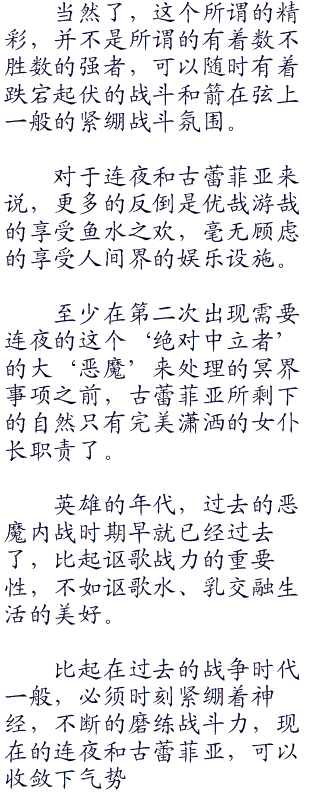 当然了，这个所谓的精
彩，并不是所谓的有着数不
胜数的强者，可以随时有着
跌宕起伏的战斗和箭在弦上
一般的紧绷战斗氛围。
对于连夜和古蕾菲亚来
说，更多的反倒是优哉游哉
的享受鱼水之欢，毫无顾虑
的享受人间界的娱乐设施。
至少在第二次出现需要
连夜的这个‘绝对中立者’
的大‘恶魔’来处理的冥界
事项之前，古蕾菲亚所剩下
的自然只有完美潇洒的女仆
长职责了。
英雄的年代，过去的恶
魔内战时期早就已经过去
了，比起讴歌战力的重要
性，不如讴歌水、乳交融生
活的美好。
比起在过去的战争时代
一般，必须时刻紧绷着神
经，不断的磨练战斗力，现
在的连夜和古蕾菲亚，可以
收敛下气势